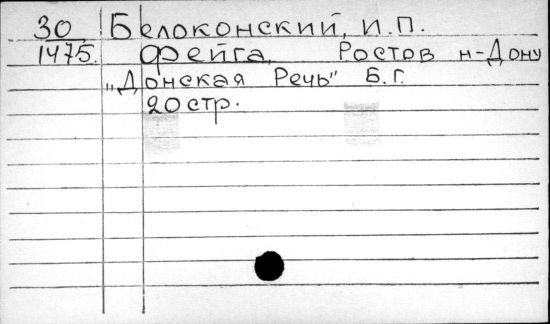 30 Белоконский, И.П.
1475. Фейга, Ростов н-Дону
"Донская Речь" Б.Г.
20 стр.